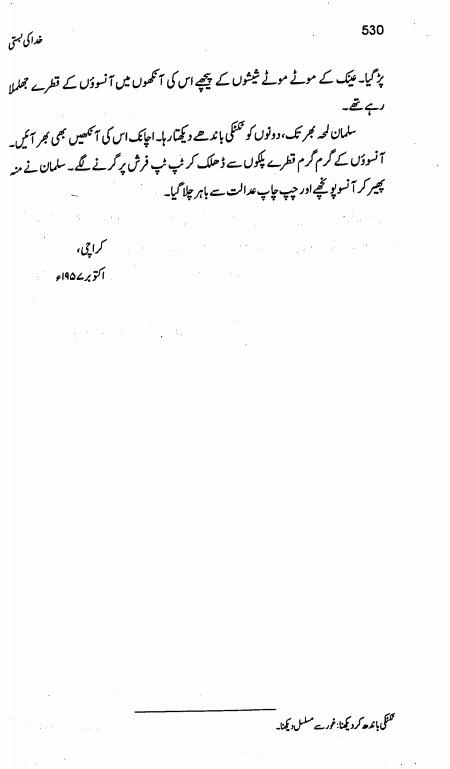 530
خدا کی بستی
پڑ گیا۔ عینک کے موٹے موٹے شیشوں کے پیچھے اس کی آنکھوں میں آنسوؤں کے قطرے جھلملا
رہے تھے۔
سلمان لمحہ بھر تک، دونوں کو ٹکٹکی باندھے دیکھتا رہا۔ اچانک اس کی آنکھیں بھی بھر آئیں۔
آنسوؤں کے گرم گرم قطرے پلکوں سے ڈھلک کر ٹپ ٹپ فرش پر گرنے لگے۔ سلمان نے منہ
پھیر کر آنسو پونچھے اور چپ چاپ عدالت سے باہر چلا گیا۔
کراچی،
اکتوبر ۱۹۵۷ء
ٹکٹکی باندھ کر دیکھنا: غور سے مسلسل دیکھنا۔